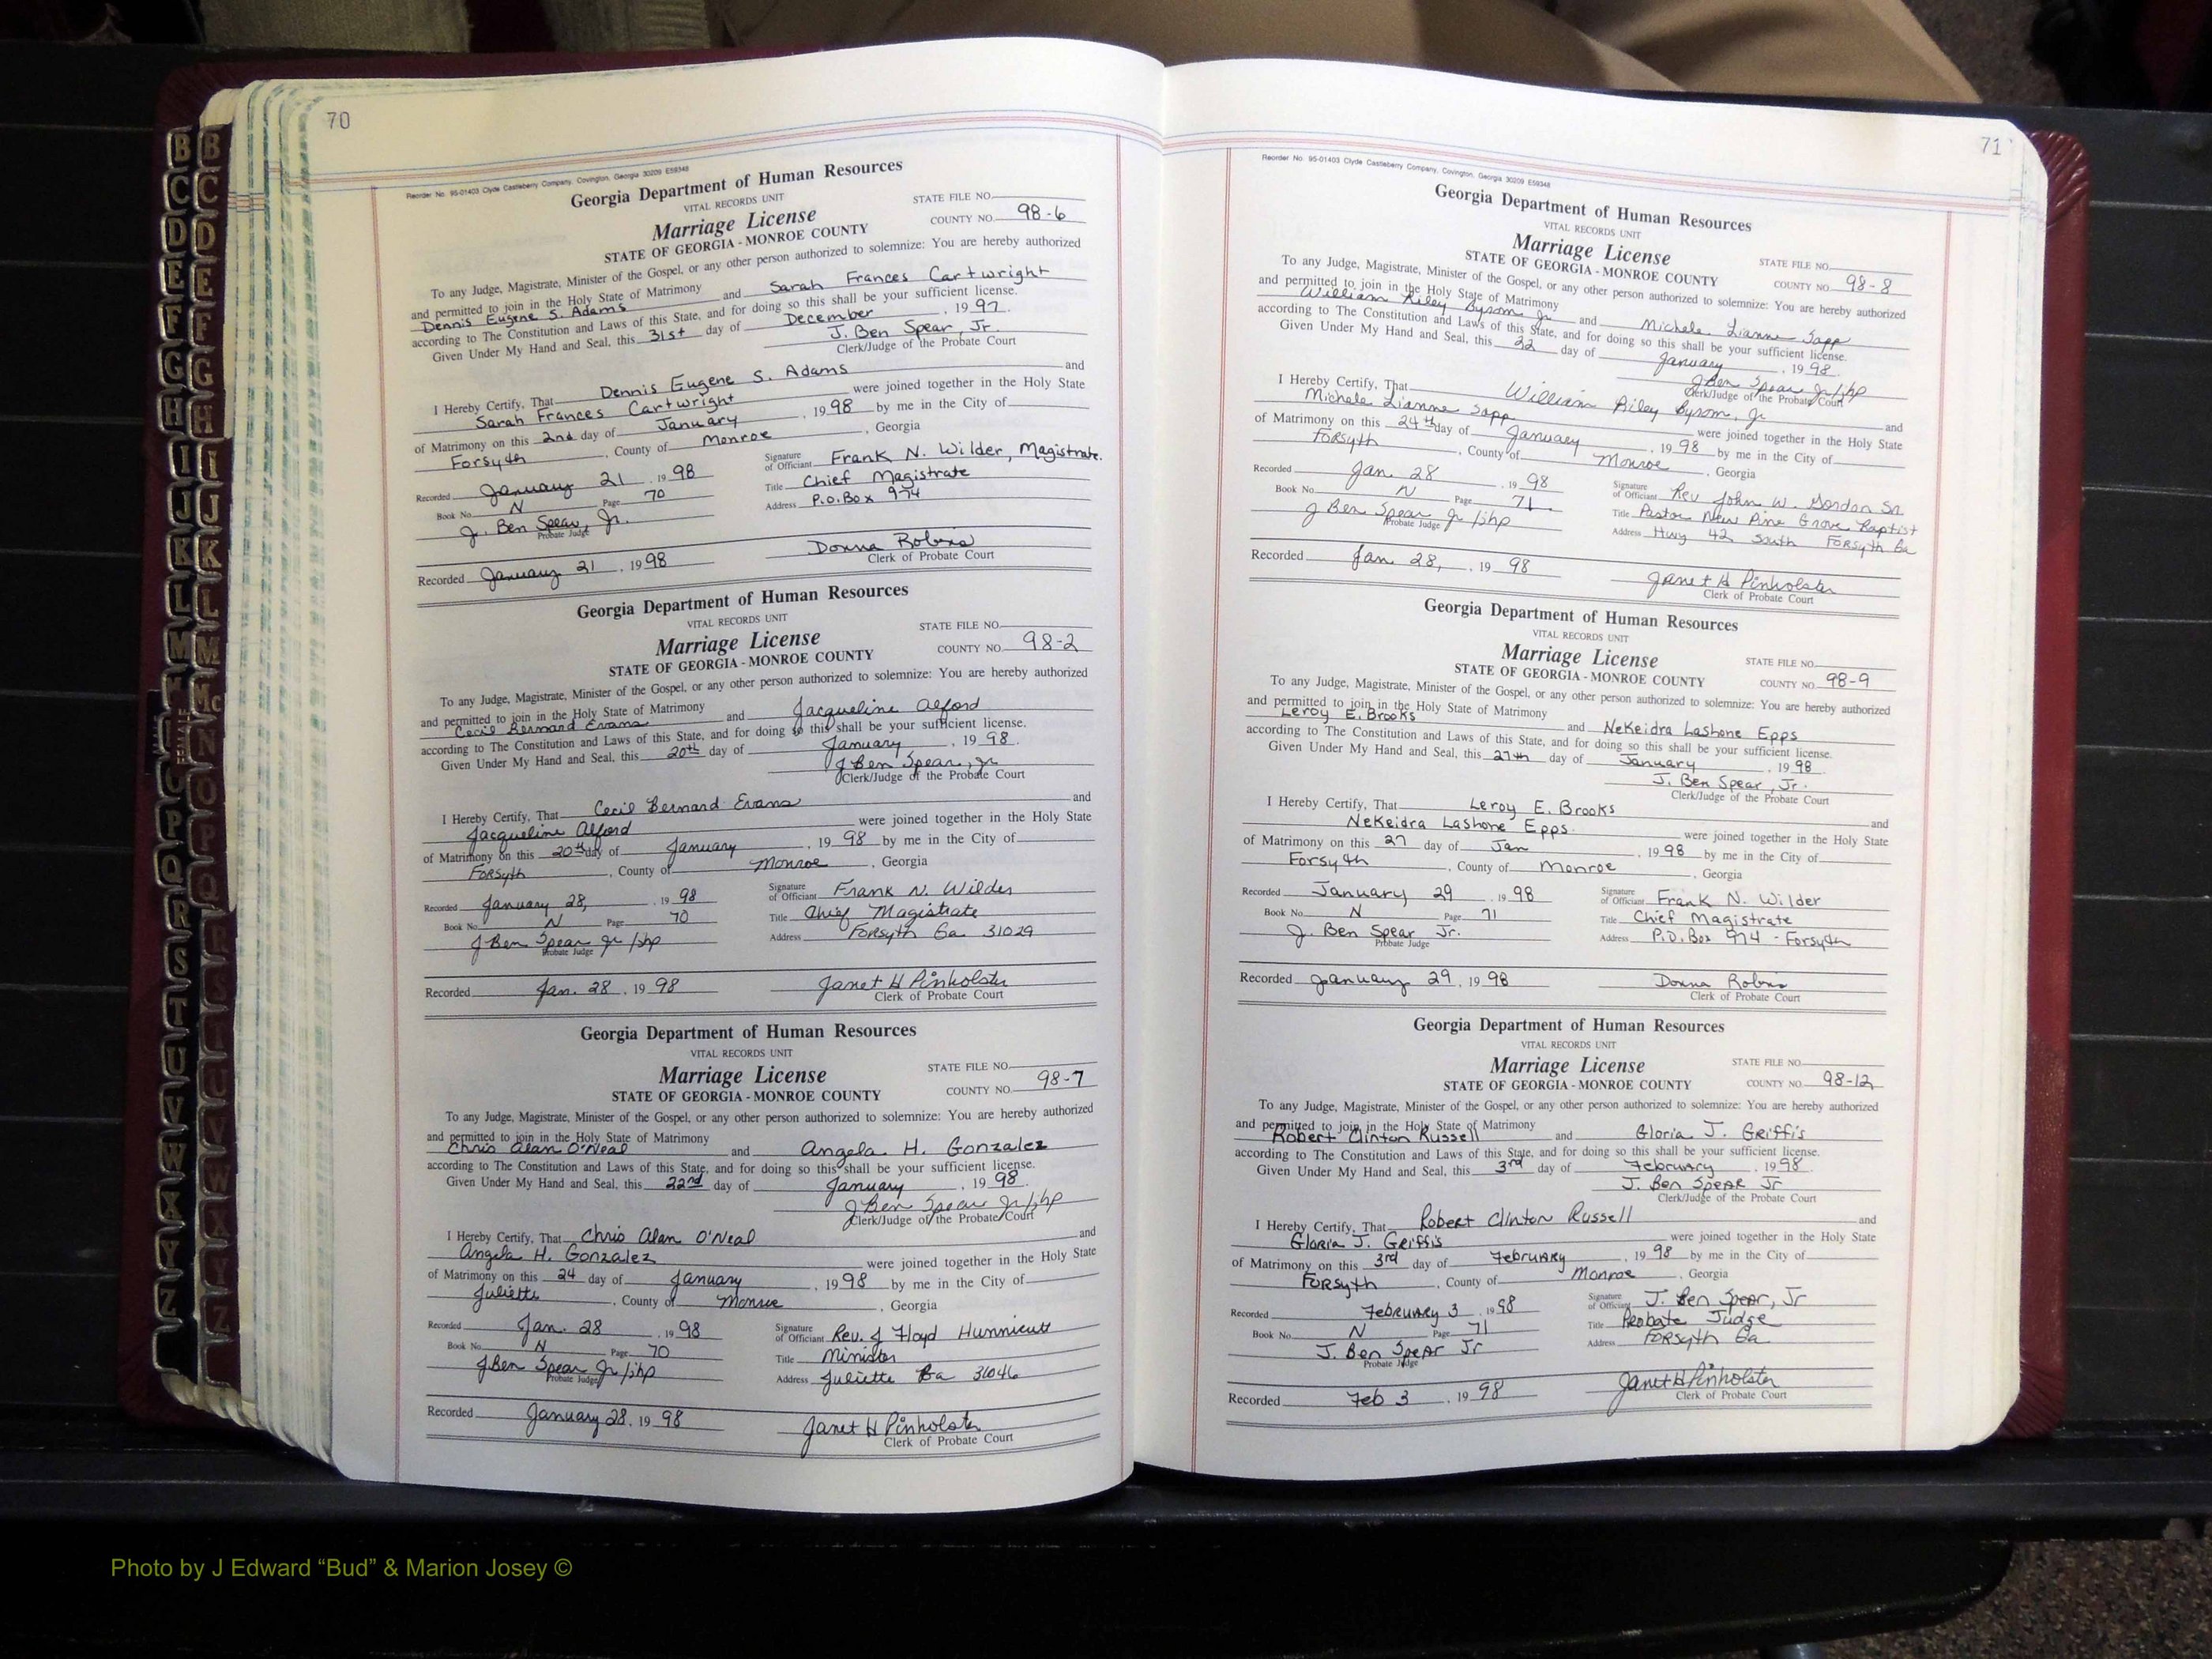 70
Reorder No. 95-01403 Clyde Castleberry Company, Covington, Georgia 30209 E59348
Georgia Department of Human Resources
VITAL RECORDS UNIT
STATE FILE NO.
Marriage License
COUNTY NO. 98-6
STATE OF GEORGIA - MONROE COUNTY
To any Judge, Magistrate, Minister of the Gospel, or any other person authorized to solemnize: You are hereby authorized
and permitted to join in the Holy State of Matrimony
Dennis Eugene S. Adams and Sarah Frances Cartwright
according to The Constitution and Laws of this State, and for doing so this shall be your sufficient license.
Given Under My Hand and Seal, this 31st day of December, 1997.
J. Ben Spear, Jr.
Clerk/Judge of the Probate Court
I Hereby Certify, That Dennis Eugene S. Adams and
Sarah Frances Cartwright were joined together in the Holy State
of Matrimony on this 2nd day of January, 1998 by me in the City of
Forsyth, County of Monroe, Georgia
Recorded January 21, 1998
Signature of Officiant Frank N. Wilder, Magistrate.
Book No. N Page 70
Title Chief Magistrate
J. Ben Spear, Jr.
Probate Judge
Address P.O. Box 974
Recorded January 21, 1998
Donna Robins
Clerk of Probate Court
Georgia Department of Human Resources
VITAL RECORDS UNIT
STATE FILE NO.
Marriage License
COUNTY NO. 98-2
STATE OF GEORGIA - MONROE COUNTY
To any Judge, Magistrate, Minister of the Gospel, or any other person authorized to solemnize: You are hereby authorized
and permitted to join in the Holy State of Matrimony
Cecil Bernard Evans and Jacqueline Alford
according to The Constitution and Laws of this State, and for doing so this shall be your sufficient license.
Given Under My Hand and Seal, this 20th day of January, 1998.
J Ben Spear, Jr
Clerk/Judge of the Probate Court
I Hereby Certify, That Cecil Bernard Evans and
Jacqueline Alford were joined together in the Holy State
of Matrimony on this 20th day of January, 1998 by me in the City of
Forsyth, County of Monroe, Georgia
Recorded January 28, 1998
Signature of Officiant Frank N. Wilder
Book No. N Page 70
Title Chief Magistrate
J Ben Spear Jr /jhp
Probate Judge
Address Forsyth Ga 31029
Recorded Jan. 28, 1998
Janet H Pinholster
Clerk of Probate Court
Georgia Department of Human Resources
VITAL RECORDS UNIT
STATE FILE NO.
Marriage License
COUNTY NO. 98-7
STATE OF GEORGIA - MONROE COUNTY
To any Judge, Magistrate, Minister of the Gospel, or any other person authorized to solemnize: You are hereby authorized
and permitted to join in the Holy State of Matrimony
Chris Alan O'Neal and Angela H. Gonzalez
according to The Constitution and Laws of this State, and for doing so this shall be your sufficient license.
Given Under My Hand and Seal, this 22nd day of January, 1998.
J Ben Spear Jr/jhp
Clerk/Judge of the Probate Court
I Hereby Certify, That Chris Alan O'Neal and
Angela H. Gonzalez were joined together in the Holy State
of Matrimony on this 24 day of January, 1998 by me in the City of
Juliette, County of Monroe, Georgia
Recorded Jan. 28, 1998
Signature of Officiant Rev. J Floyd Hunnicutt
Book No. N Page 70
Title Minister
J Ben Spear Jr /jhp
Probate Judge
Address Juliette Ga 31046
Recorded January 28, 1998
Janet H Pinholster
Clerk of Probate Court
71
Reorder No. 95-01403 Clyde Castleberry Company, Covington, Georgia 30209 E59348
Georgia Department of Human Resources
VITAL RECORDS UNIT
Marriage License
STATE FILE NO.
STATE OF GEORGIA - MONROE COUNTY
COUNTY NO. 98-8
To any Judge, Magistrate, Minister of the Gospel, or any other person authorized to solemnize: You are hereby authorized
and permitted to join in the Holy State of Matrimony
William Riley Bysom Jr and Michele Lianne Sapp
according to The Constitution and Laws of this State, and for doing so this shall be your sufficient license.
Given Under My Hand and Seal, this 22 day of January, 1998.
J Ben Spear Jr/jhp
Clerk/Judge of the Probate Court
I Hereby Certify, That William Riley Bysom, Jr and
Michele Lianne Sapp were joined together in the Holy State
of Matrimony on this 24th day of January, 1998 by me in the City of
Forsyth, County of Monroe, Georgia
Recorded Jan. 28, 1998
Signature of Officiant Rev John W. Gordon Sr.
Book No. N Page 71
Title Pastor New Pine Grove Baptist
J Ben Spear Jr /jhp
Probate Judge
Address Hwy 42 South Forsyth Ga
Recorded Jan. 28, 1998
Janet H Pinholster
Clerk of Probate Court
Georgia Department of Human Resources
VITAL RECORDS UNIT
Marriage License
STATE FILE NO.
STATE OF GEORGIA - MONROE COUNTY
COUNTY NO. 98-9
To any Judge, Magistrate, Minister of the Gospel, or any other person authorized to solemnize: You are hereby authorized
and permitted to join in the Holy State of Matrimony
Leroy E. Brooks and NeKeidra Lashone Epps
according to The Constitution and Laws of this State, and for doing so this shall be your sufficient license.
Given Under My Hand and Seal, this 27th day of January, 1998.
J. Ben Spear, Jr.
Clerk/Judge of the Probate Court
I Hereby Certify, That Leroy E. Brooks and
NeKeidra Lashone Epps. were joined together in the Holy State
of Matrimony on this 27 day of Jan, 1998 by me in the City of
Forsyth, County of Monroe, Georgia
Recorded January 29, 1998
Signature of Officiant Frank N. Wilder
Book No. N Page 71
Title Chief Magistrate
J. Ben Spear Jr.
Probate Judge
Address P.O. Box 974 - Forsyth
Recorded January 29, 1998
Donna Robins
Clerk of Probate Court
Georgia Department of Human Resources
VITAL RECORDS UNIT
Marriage License
STATE FILE NO.
STATE OF GEORGIA - MONROE COUNTY
COUNTY NO. 98-12
To any Judge, Magistrate, Minister of the Gospel, or any other person authorized to solemnize: You are hereby authorized
and permitted to join in the Holy State of Matrimony
Robert Clinton Russell and Gloria J. Griffis
according to The Constitution and Laws of this State, and for doing so this shall be your sufficient license.
Given Under My Hand and Seal, this 3rd day of February, 1998.
J. Ben Spear Jr
Clerk/Judge of the Probate Court
I Hereby Certify, That Robert Clinton Russell and
Gloria J. Griffis were joined together in the Holy State
of Matrimony on this 3rd day of February, 1998 by me in the City of
Forsyth, County of Monroe, Georgia
Recorded February 3, 1998
Signature of Officiant J. Ben Spear, Jr
Book No. N Page 71
Title Probate Judge
J. Ben Spear Jr
Probate Judge
Address Forsyth Ga
Recorded Feb 3, 1998
Janet H Pinholster
Clerk of Probate Court
Photo by J Edward “Bud” & Marion Josey ©